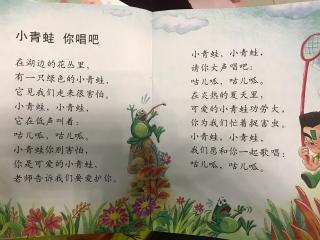 小青蛙 你唱吧
在湖边的花丛里，
有一只绿色的小青蛙，
它见我们走来很害怕。
小青蛙，小青蛙，
它在低声叫着：
咕儿呱，咕儿呱。
小青蛙你别害怕，
你是可爱的小青蛙，
老师告诉我们要爱护你。
小青蛙，小青蛙，
请你大声唱吧：
咕儿呱，咕儿呱。
在炎热的夏天里，
可爱的小青蛙功劳大，
你为我们忙着捉害虫。
小青蛙，小青蛙，
我们愿和你一起歌唱：
咕儿呱，咕儿呱。